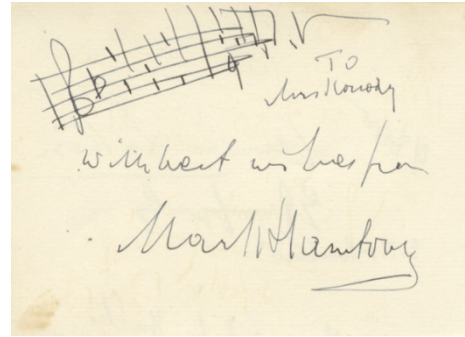 TO
Miss Konody
with best wishes from
Mark Hambourg